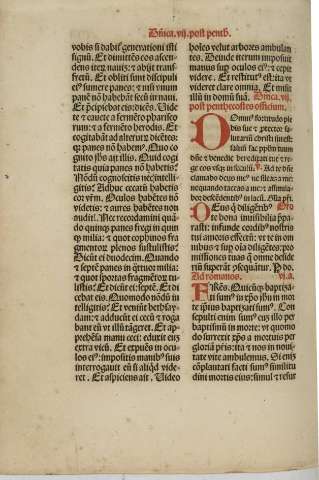 Dñica.vij.post penth.
vobis si dabit generationi isti
signũ. Et dimittẽs eos ascen-
dens iteꝝ nauiʒ: ⁊ abijt trans
fretũ. Et obliti sunt discipuli
eiꝰ sumere panes: ⁊ nisi vnum
panẽ nõ habebãt secũ in naui.
Et p̃cipebat eis: dicẽs. Vide
te ⁊ cauete a fermẽto phariseo
rum: ⁊ a fermẽto herodis. Et
cogitabãt ad alterutrũ: dicẽtes:
quia panes nõ habemꝰ. Quo co
gnito ihs ait illis. Quid cogi
tatis quia panes nõ habetis?
Nõdũ cognoscitis nec ĩntelli-
gitis? Adhuc cecatũ habetis
cor vr̃m. Oculos habẽtes nõ
videtis: ⁊ aures habentes non
auditis. Nec recordamini quã
do quinqʒ panes fregi in quin
qʒ milia: ⁊ quot cophinos fra
gmentoꝝ plenos sustulistis?
Dicũt ei: duodecim. Quando
⁊ septẽ panes in q̃tuor milia:
quot sportas fragmẽtoꝝ tu-
listis? Et dicũt ei: septẽ. Et di
cebat eis. Quomodo nõdũ in
telligitis? Et veniũt bethsay-
dam: ⁊ adducũt ei cecũ: ⁊ roga
bant eũ vt illũ tãgeret. Et ap-
prehẽsa manu ceci: eduxit eum
extra vicũ. Et expuẽs in ocu-
los eiꝰ: impositis manibꝰ suis
interrogauit eũ si aliq̃d vide-
ret. Et aspiciens ait. Video
hoĩes velut arbores ambulan
tes. Deinde iterum imposuit
manus sup oculos eiꝰ: ⁊ cepit
videre. Et restitutꝰ est: ita vt
videret clare omnia. Et misit
illũ in domũ suã. Dñica.vij.
post penthecostes officium.
Omnꝰ fortitudo ple
bis sue ⁊ ptector sa-
lutariũ christi
saluũ fac pplm̃ tuum
dñe ⁊ benedic hereditati tue ⁊ re
ge eos vsqʒ in seculũ. Ad te dñe
clamabo deus meꝰ ne sileas a me:
nequando taceas a me: ⁊ assimila-
bor descẽdẽtibꝰ in lacũ. Gl̃a pr̃i.
Deus q̃ diligẽtibꝰ te
bona inuisibilia p̃pa
rasti: infunde cordibꝰ nostris
tui amoris effectũ: vt te in om
nibus ⁊ sup oĩa diligẽtes: pro
missiones tuas q̃ omne deside
riũ superãt ꝯsequatur. P do.
Ad romanos. vi.a.
Fr̃es. Quicũqʒ baptiza
ti sumꝰ in xp̃o ihu in mor
te ip̃ius baptizati sumꝰ. Con
sepulti enim sumꝰ cum illo per
baptismũ in morte: vt quomo
do surrexit xp̃s a mortuis per
gloriã pr̃is: ita ⁊ nos in noui-
tate vite ambulemus. Si eniʒ
cõplantati facti sumꝰ similitu
dini mortis eius: simul ⁊ resur